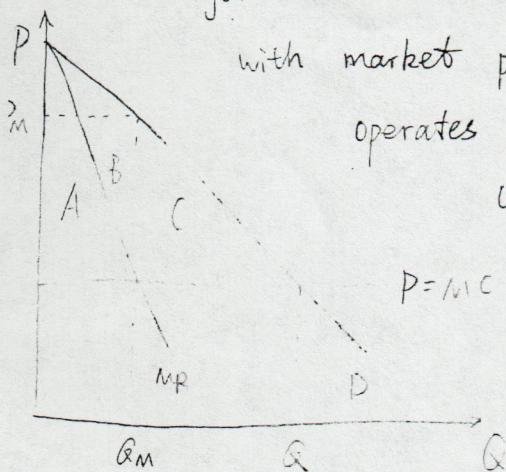 P
with market
M
operates
B
A
C
P = MC
MR
D
QM Q Q